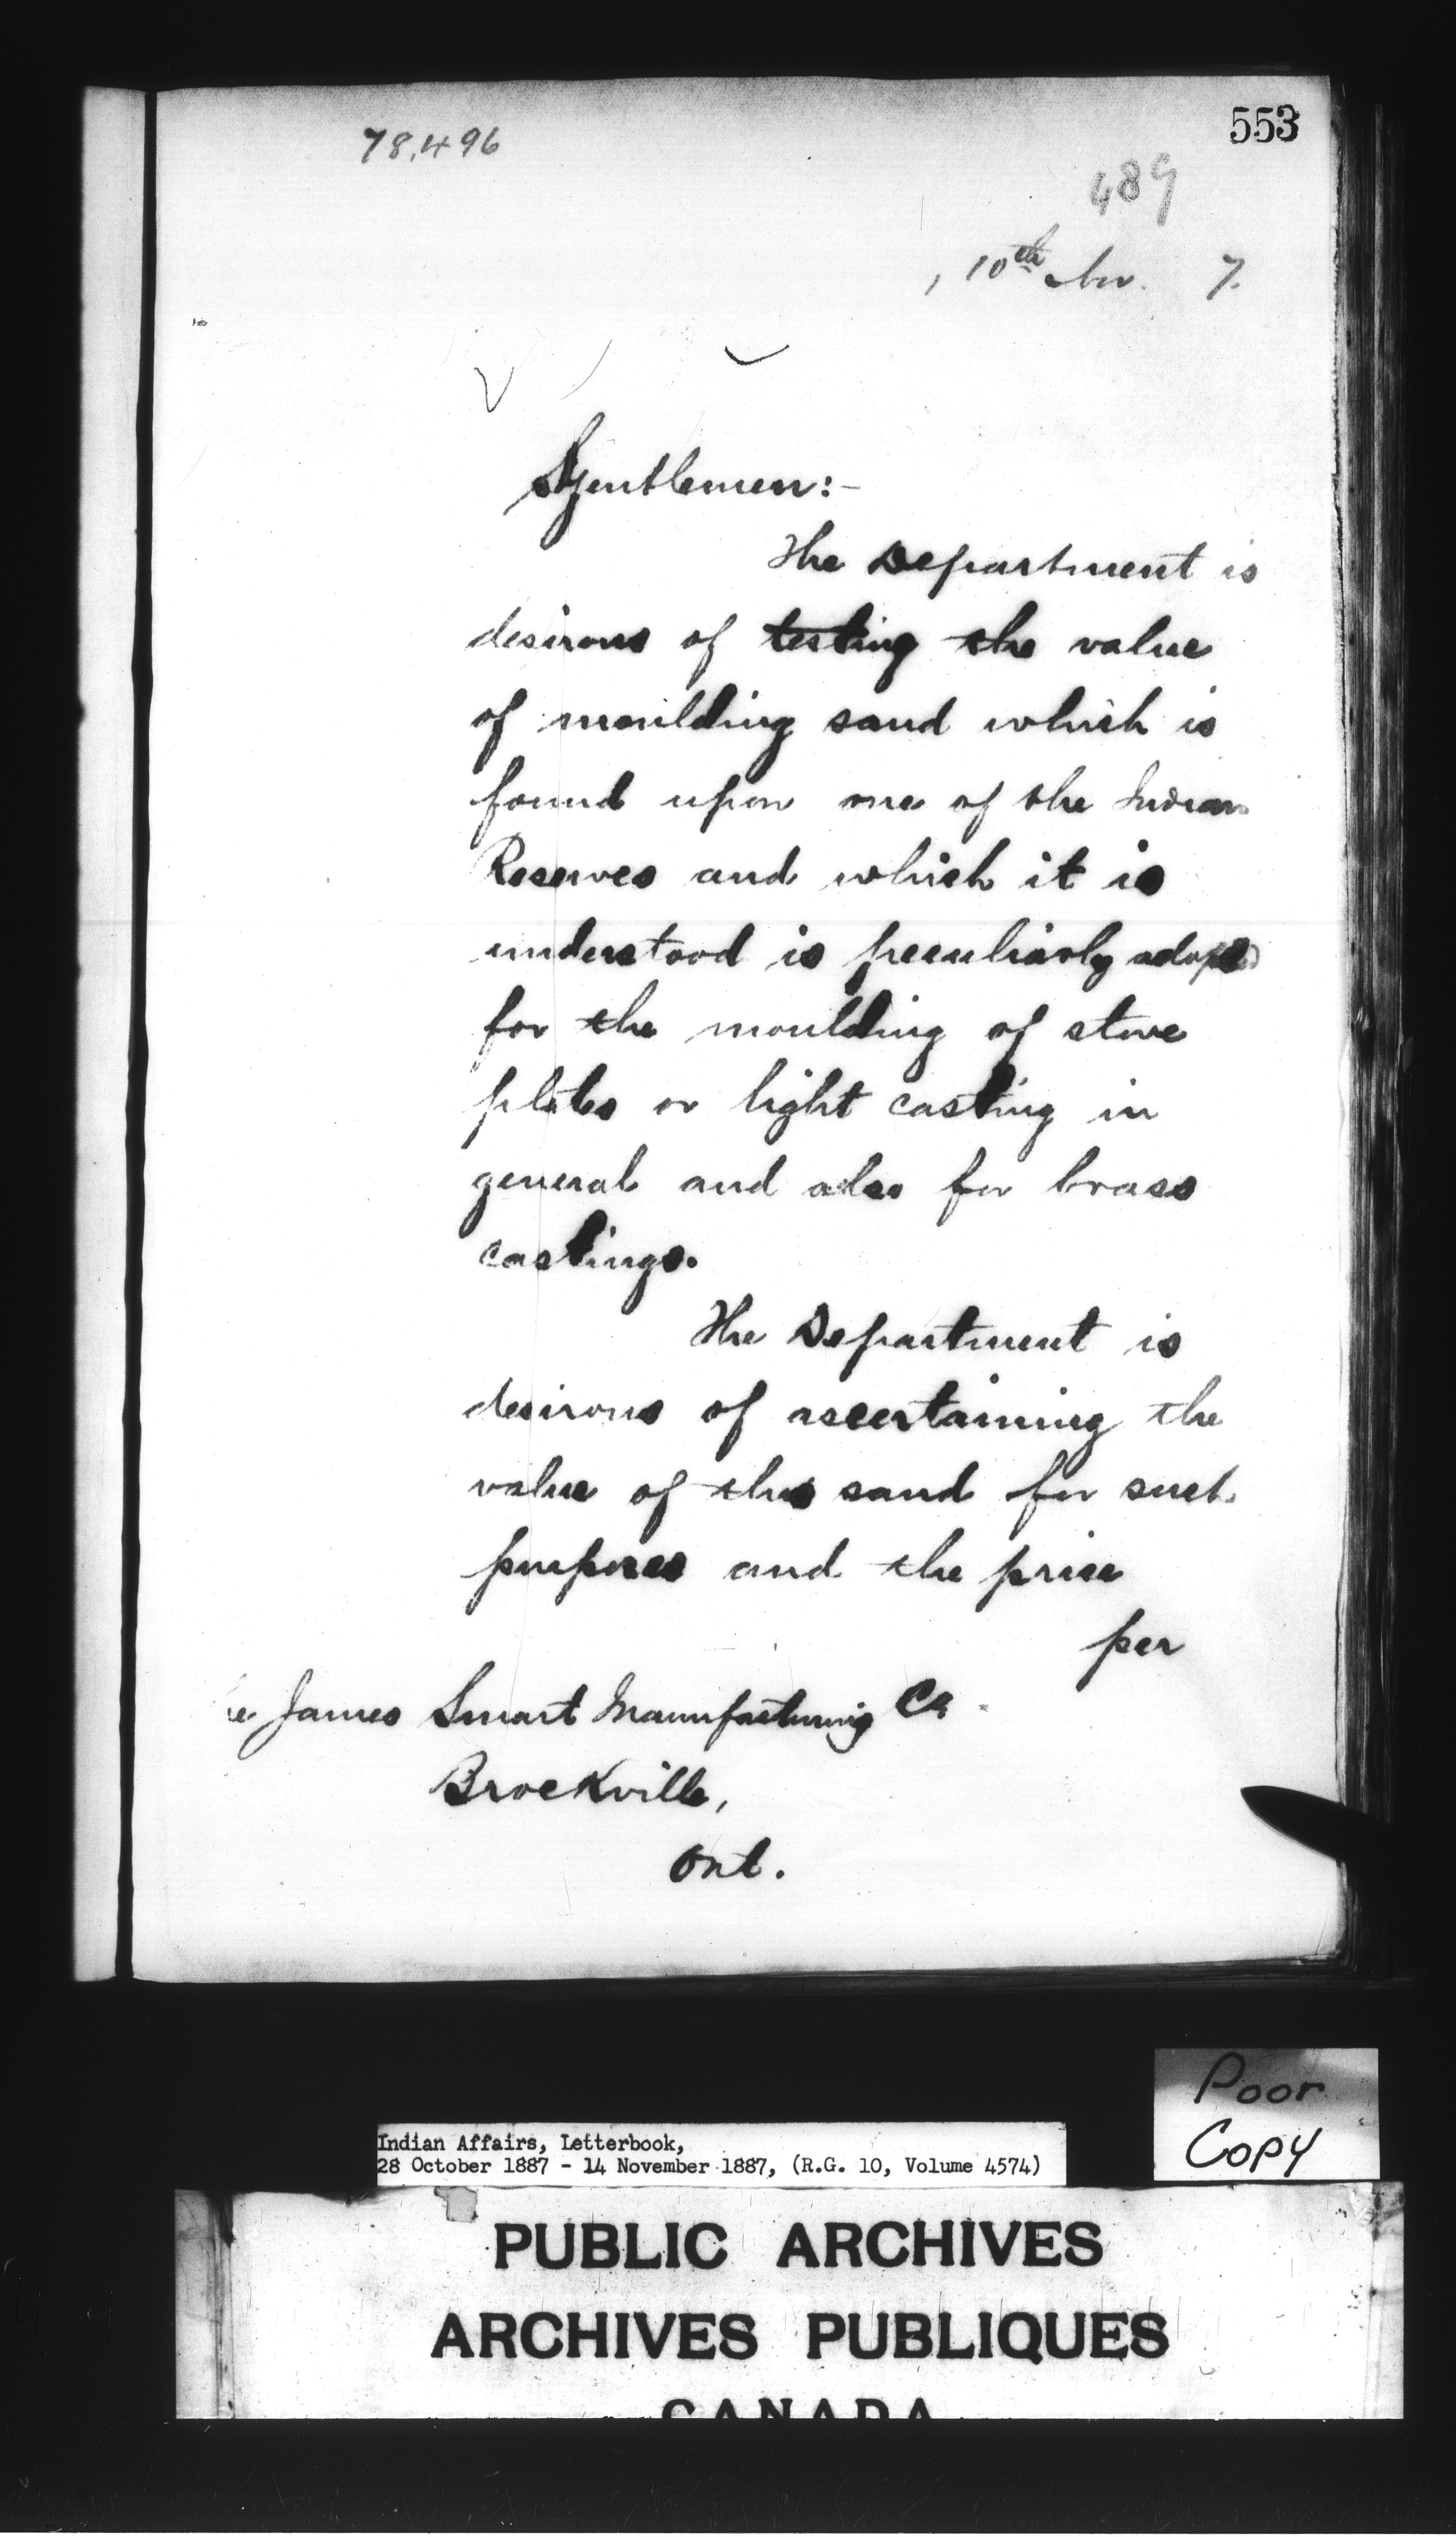 553
78,496
489
, 10th Nov. 7.
Gentlemen:-
The Department is
desirous of testing the value
of moulding sand which is
found upon one of the Indian
Reserves and which it is
understood is peculiarly adapted
for the moulding of stove
plates or light casting in
general and also for brass
castings.
The Department is
desirous of ascertaining the
value of this sand for such
purposes and the price
per
James Smart Manufacturing Co.
Brockville,
Ont.
Poor
Copy
Indian Affairs, Letterbook,
28 October 1887 - 14 November 1887, (R.G. 10, Volume 4574)
PUBLIC ARCHIVES
ARCHIVES PUBLIQUES
CANADA